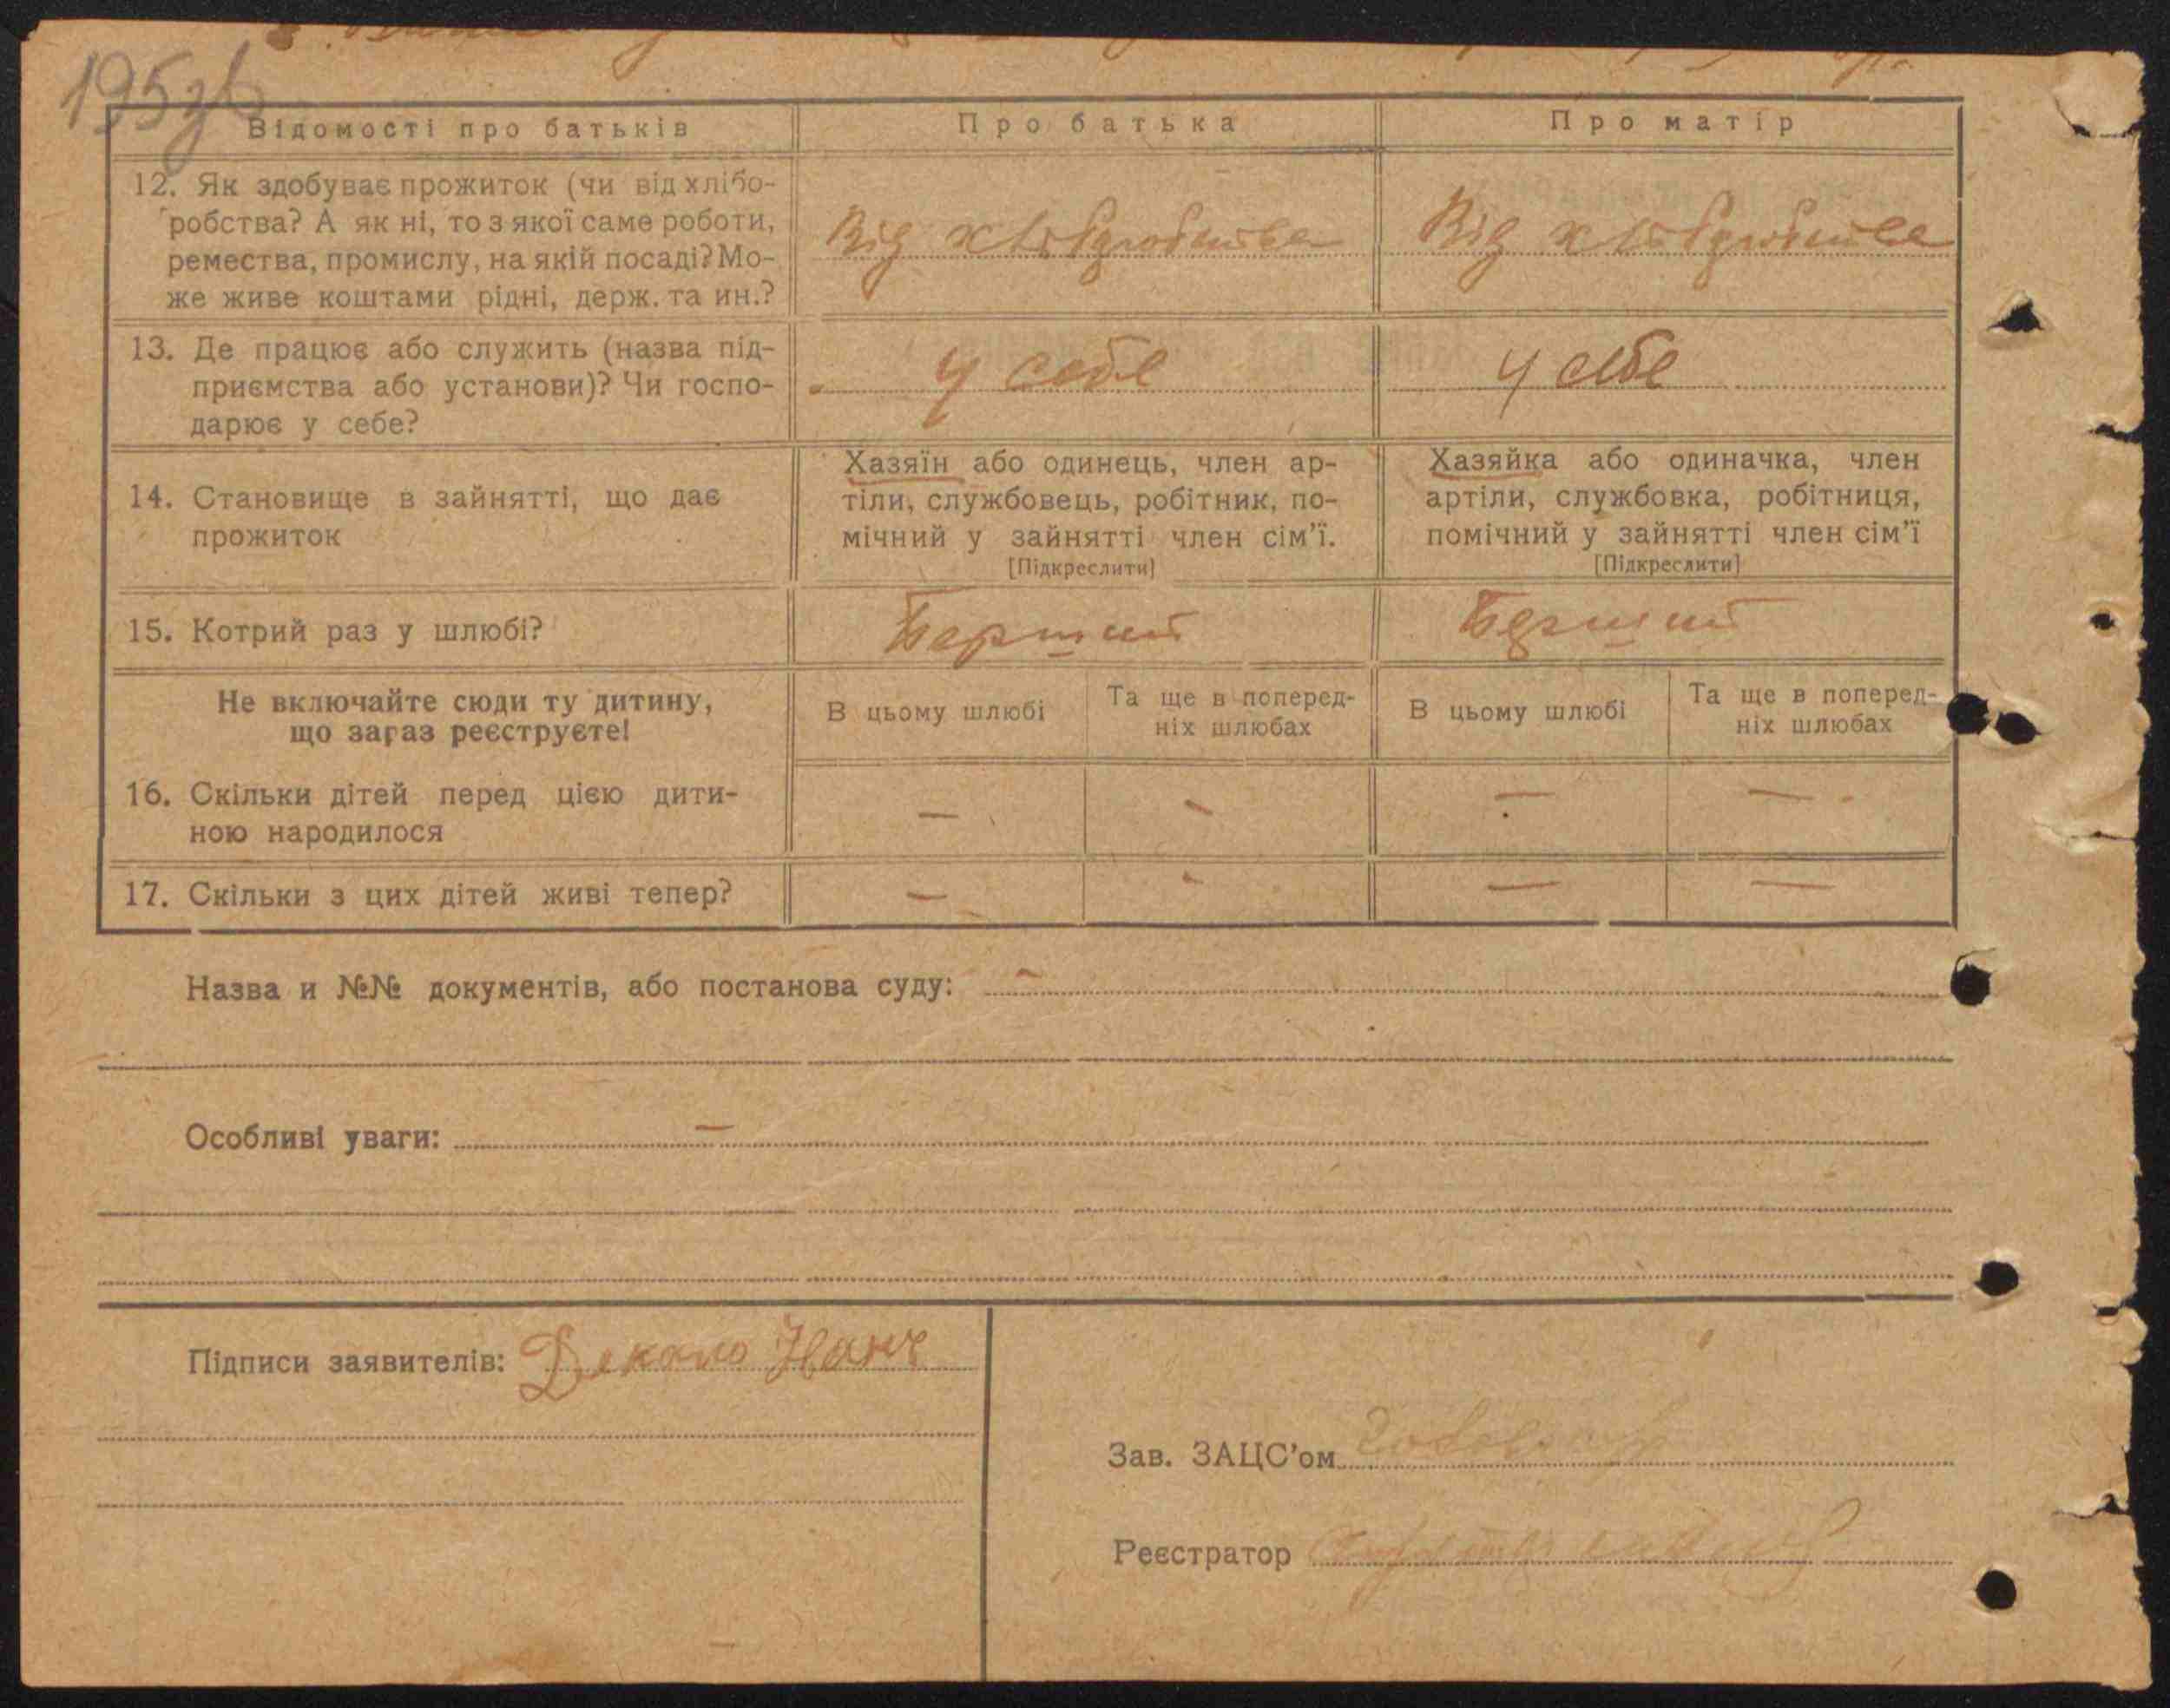 195зв
Відомості про батьків
Про батька
Про матір
12. Як здобуває прожиток (чи від хлібо-
робства? А як ні, то з якої саме роботи,
ремества, промислу, на якій посаді? Мо-
же живе коштами рідні, держ. та ин.?
Від хліборобства
Від хліборобства
13. Де працює або служить (назва під-
приємства або установи)? Чи госпо-
дарює у себе?
У себе
У себе
14. Становище в зайнятті, що дає
прожиток
Хазяїн або одинець, член ар-
тіли, службовець, робітник, по-
мічний у зайнятті член сім'ї.
[Підкреслити]
Хазяйка або одиначка, член
артіли, службовка, робітниця,
помічний у зайнятті член сім'ї
[Підкреслити]
15. Котрий раз у шлюбі?
Перший
Перший
Не включайте сюди ту дитину,
що зараз реєструєте!
В цьому шлюбі
Та ще в поперед-
ніх шлюбах
В цьому шлюбі
Та ще в поперед-
ніх шлюбах
16. Скільки дітей перед цією дити-
ною народилося
—
—
—
—
17. Скільки з цих дітей живі тепер?
—
—
—
—
Назва и №№ документів, або постанова суду: —
Особливі уваги: —
Підписи заявителів:
Зав. ЗАЦС'ом
Реєстратор